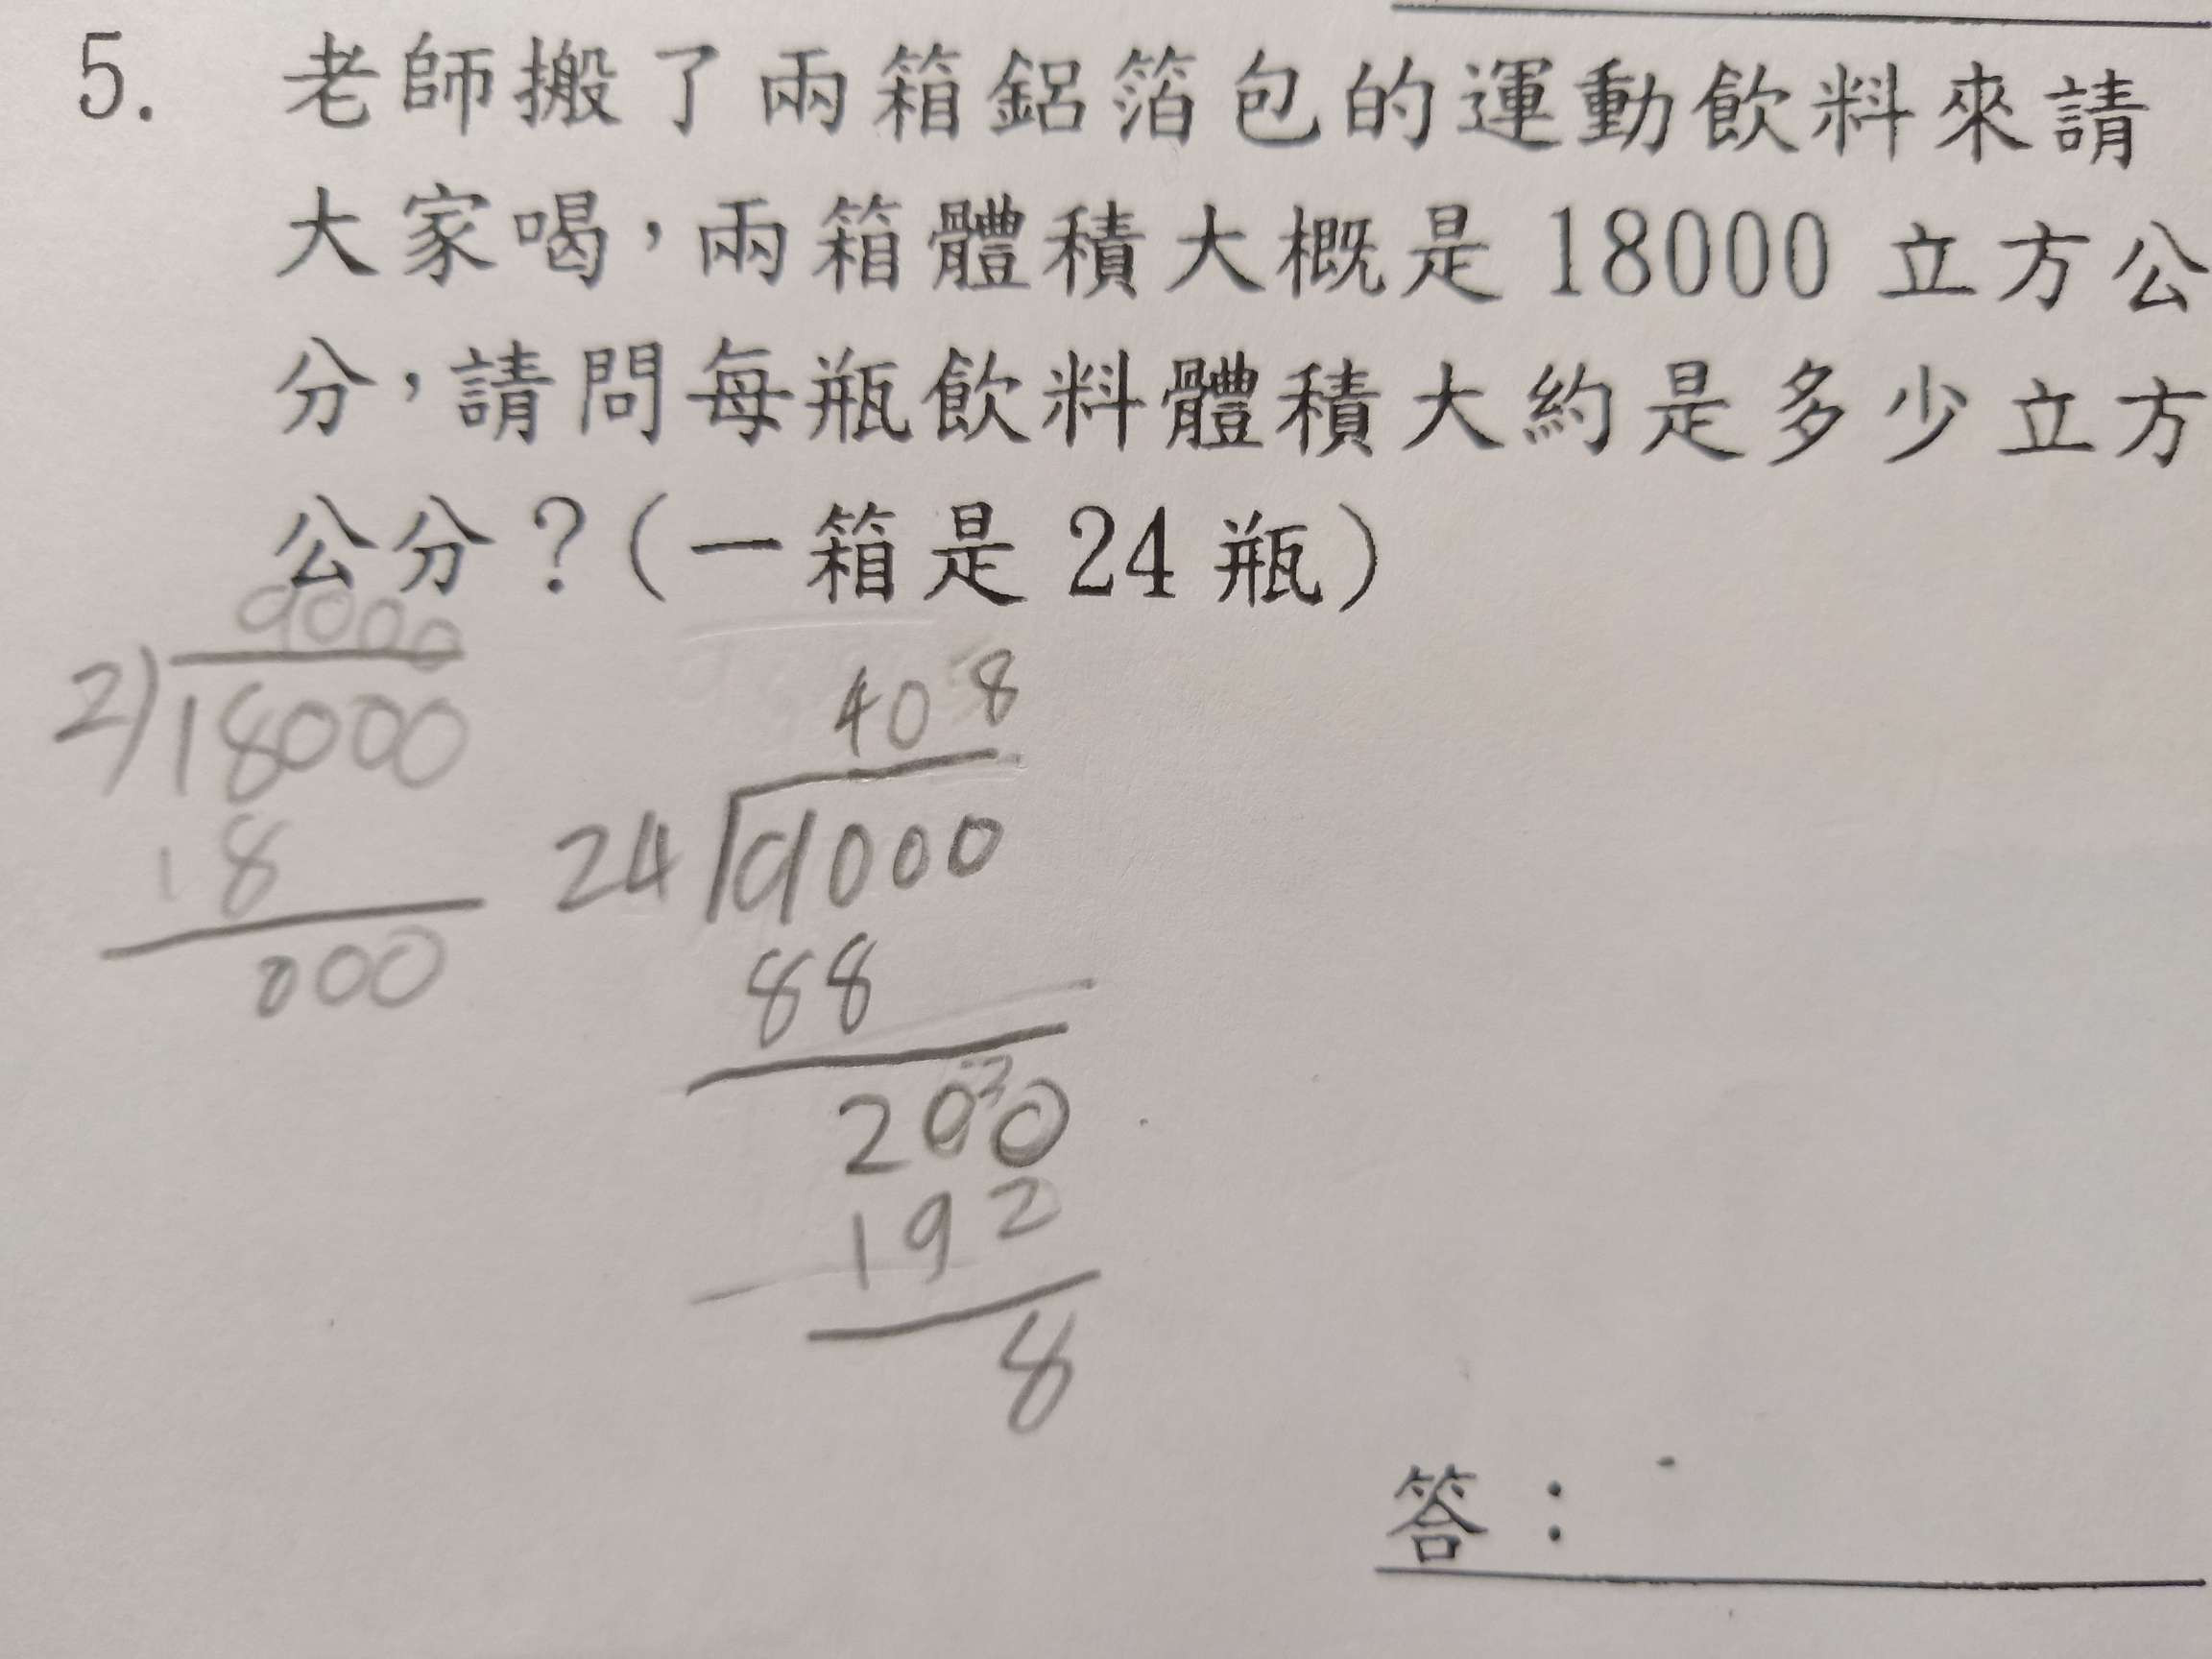 5. 老師搬了兩箱鋁箔包的運動飲料來請
大家喝，兩箱體積大概是 18000 立方公
分，請問每瓶飲料體積大約是多少立方
公分？(一箱是 24 瓶)
9000
2)18000
18
000
408
24)9000
88
200
192
8
答：